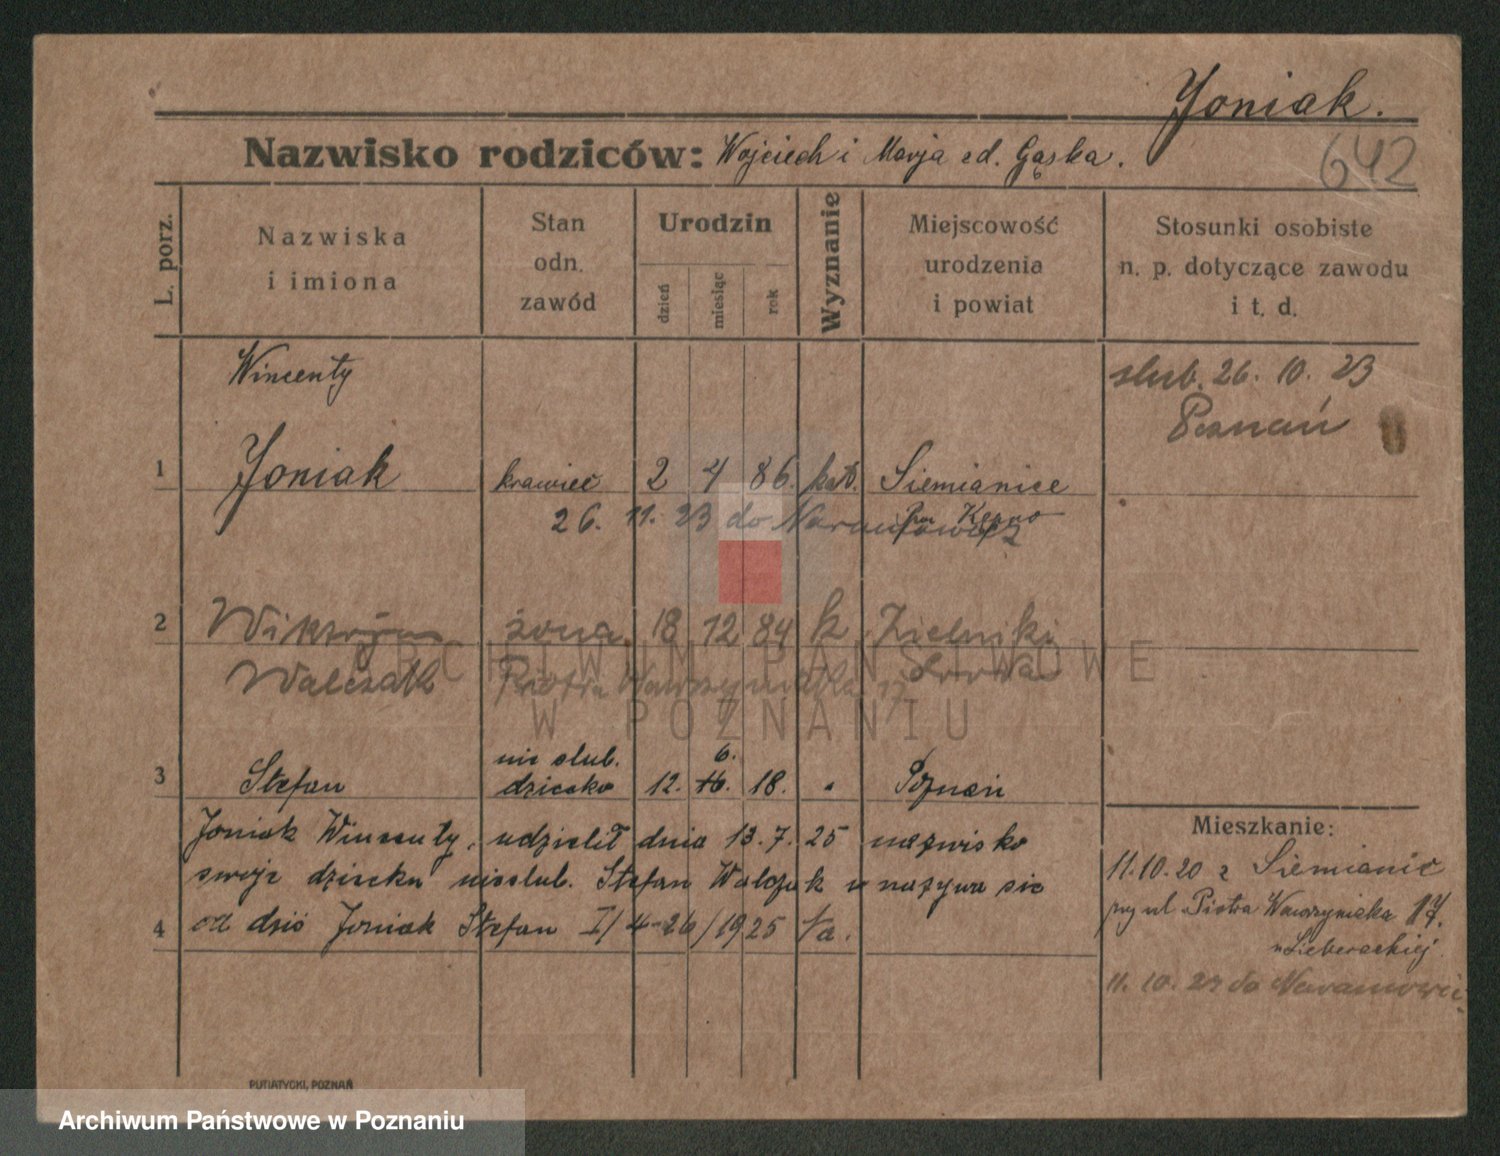 Joniak.
Nazwisko rodziców: Wojciech i Marja zd. Gąska.
642
L. porz.
Nazwiska
i imiona
Stan
odn.
zawód
Urodzin
dzień
miesiąc
rok
Wyznanie
Miejscowość
urodzenia
i powiat
Stosunki osobiste
n. p. dotyczące zawodu
i t. d.
Wincenty
ślub. 26. 10. 23
Poznań
1 Joniak krawiec 2 4 86. kat. Siemianice
Pow Kępno
26. 11. 23 do
2 żona 18 12 84 k Zielniki
Walczak
Piotra Wawrzyniaka 17 Środa
nie ślub.
6.
3 Stefan dziecko 12. 18. " Poznań
Joniak Wincenty, udzielił dnia 13. 7. 25 nazwisko
swoje dziecku nieślub. Stefan Walczak i nazywa sie
4 od dziś Joniak Stefan I/4-26/1925
Mieszkanie:
11.10.20 z Siemianic
przy ul Piotra Wawrzyniaka 17.
11. 10. 23 do
PUTIATYCKI, POZNAŃ
ARCHIWUM PAŃSTWOWE
W POZNANIU
Archiwum Państwowe w Poznaniu